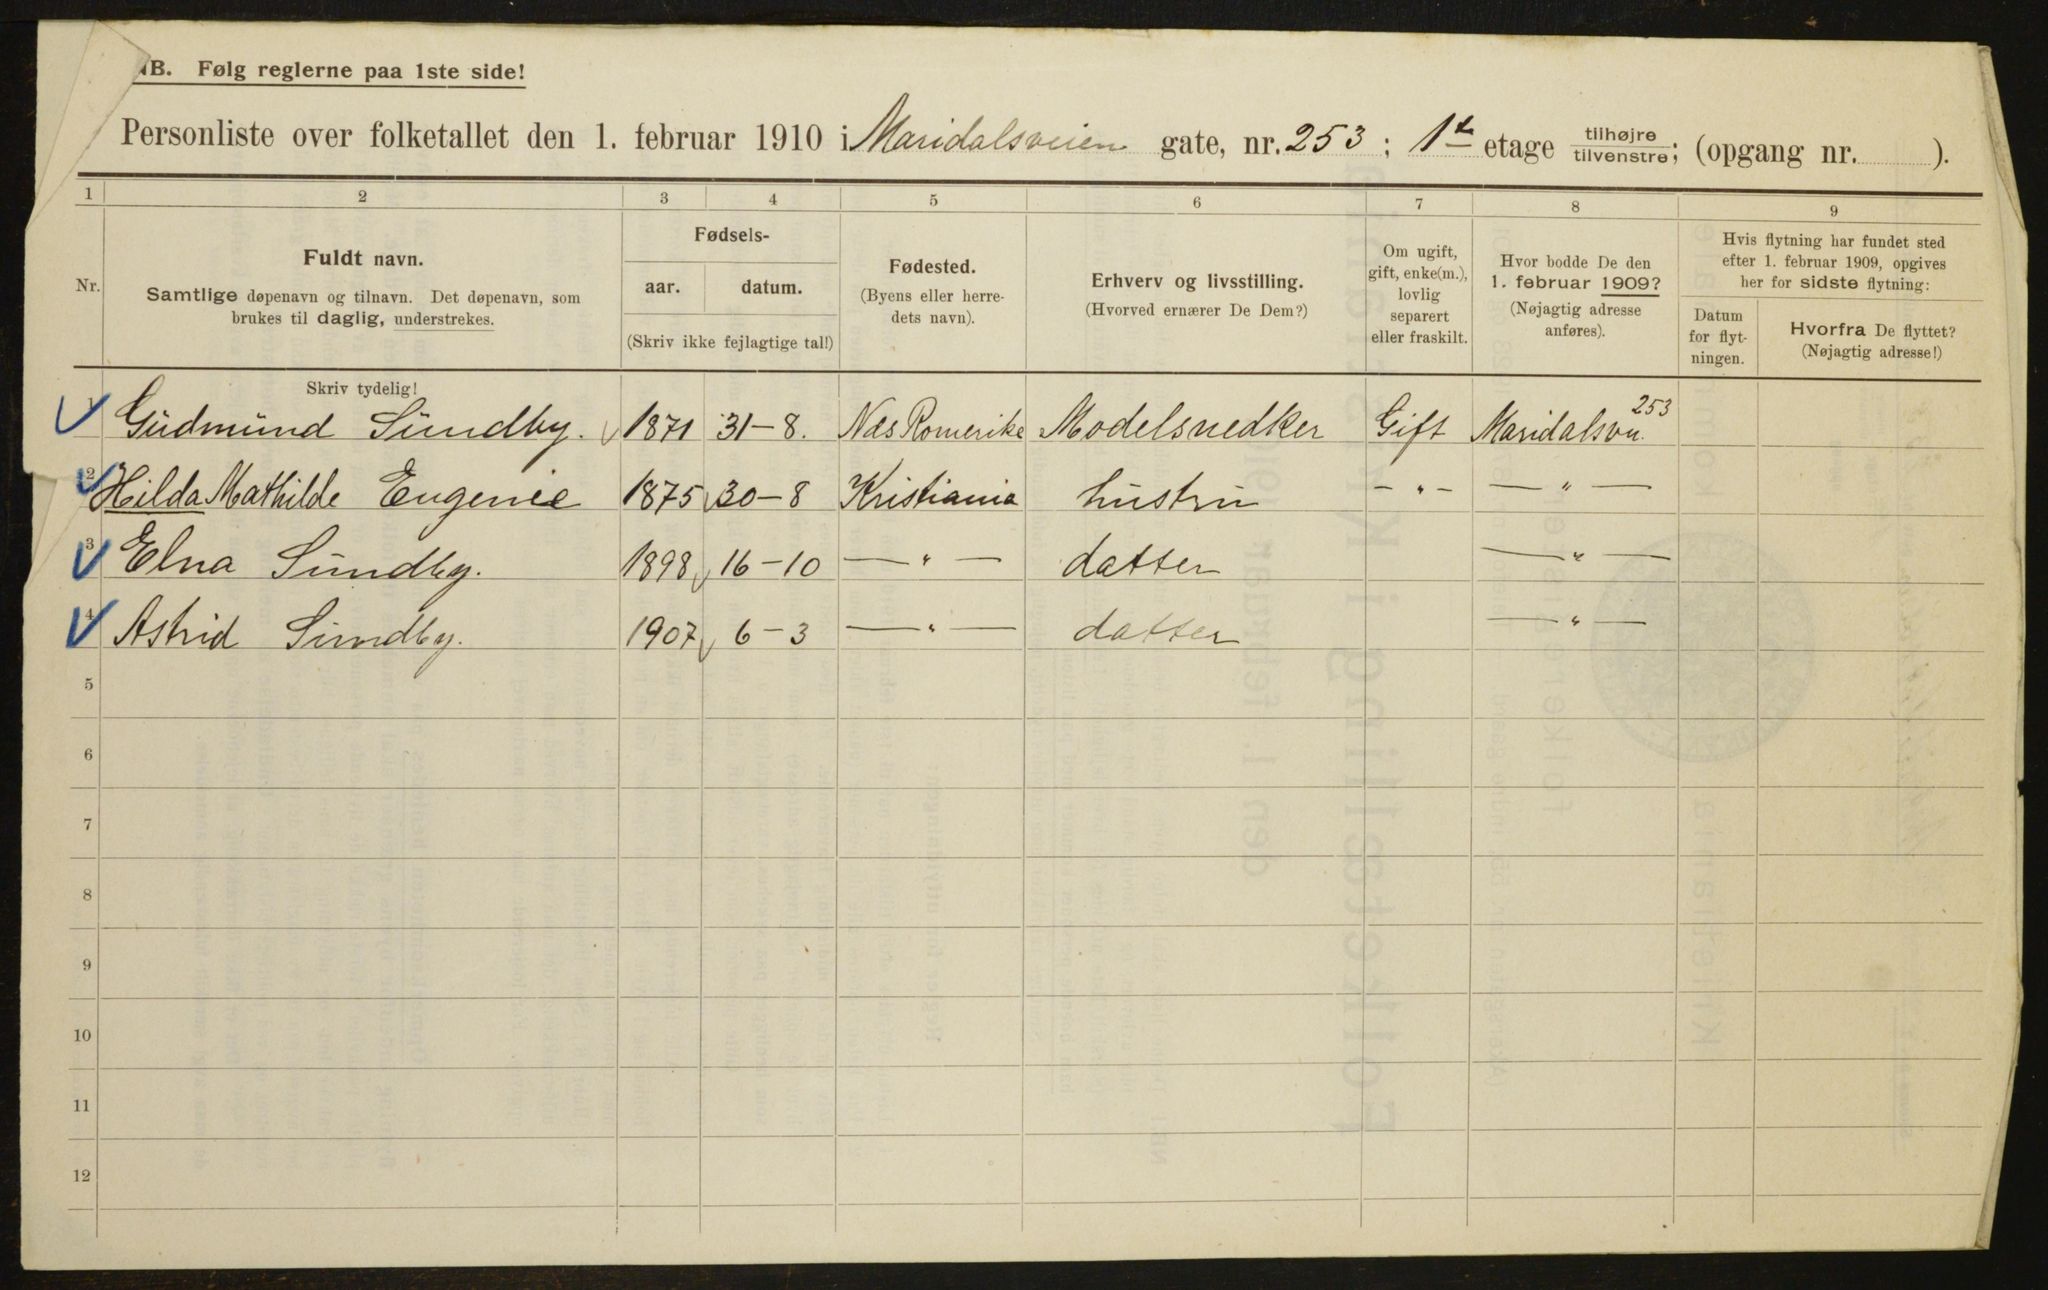 NB. Følg reglerne paa 1ste side!
Personliste over folketallet den 1. februar 1910 i Maridalsveien gate, nr. 253; 1te etage tilhøjre tilvenstre; (opgang nr. ).
1 2 3 4 5 6 7 8 9
Nr.
Fuldt navn.
Samtlige døpenavn og tilnavn. Det døpenavn, som
brukes til daglig, understrekes.
Fødsels-
aar. datum.
(Skriv ikke fejlagtige tal!)
Fødested.
(Byens eller herre-
dets navn).
Erhverv og livsstilling.
(Hvorved ernærer De Dem?)
Om ugift,
gift, enke(m.),
lovlig
separert
eller fraskilt.
Hvor bodde De den
1. februar 1909?
(Nøjagtig adresse
anføres).
Hvis flytning har fundet sted
efter 1. februar 1909, opgives
her for sidste flytning:
Datum
for flyt-
ningen.
Hvorfra De flyttet?
(Nøjagtig adresse!)
Skriv tydelig!
1 Gudmund Sundby. 1871 31-8. Næs Romerike Modelsnedker Gift Maridalsvn. 253
2 Hilda Mathilde Eugenie 1875 30-8 Kristiania hustru -"- -"-
3 Elna Sundby. 1898 16-10 -"- datter -"-
4 Astrid Sundby. 1907 6-3 -"- datter -"-
5
6
7
8
9
10
11
12